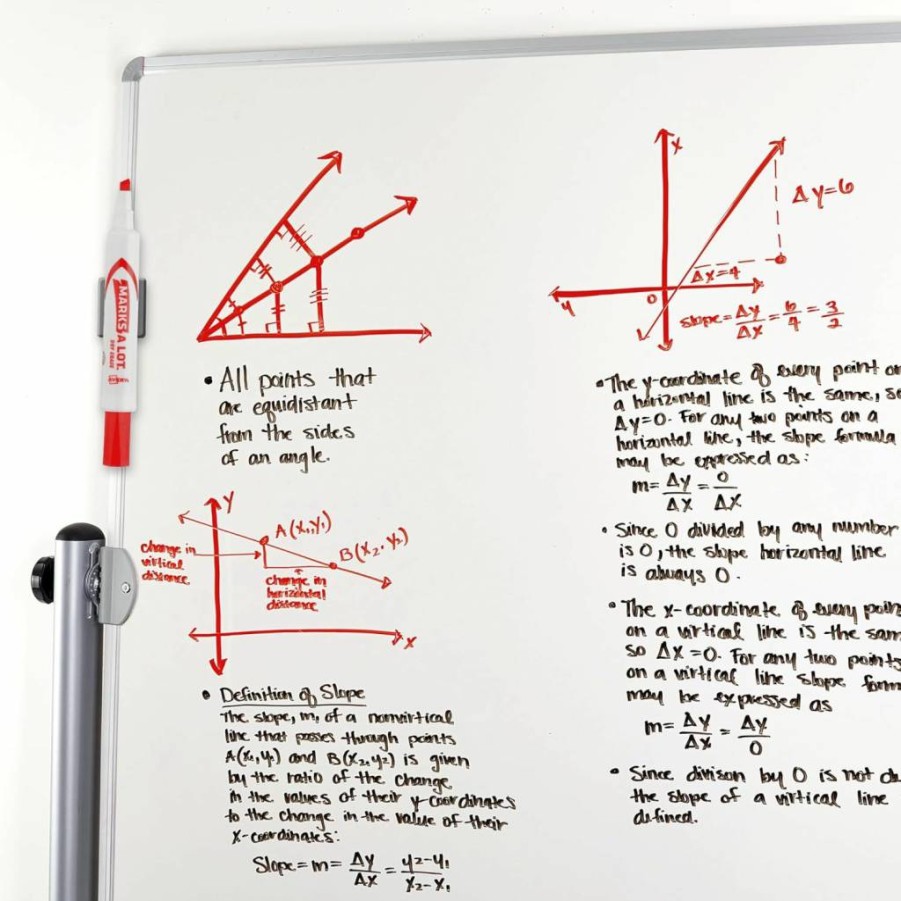 MARKS A LOT.
DRY ERASE
• All points that
are equidistant
from the sides
of an angle.
Y
A(x₁,y₁)
B(x₂, y₂)
change in
virtical
distance
change in
horizontal
distance
X
• Definition of Slope
The slope, m, of a nonvirtical
line that passes through points
A(x₁,y₁) and B(x₂,y₂) is given
by the ratio of the change
in the values of their y-coordinates
to the change in the value of their
x-coordinates:
Slope = m = Δy/Δx = y₂-y₁/x₂-x₁
X
Δy=6
Δx=4
y
0
slope = Δy/Δx = 6/4 = 3/2
• The y-coordinate of every point on
a horizontal line is the same, so
Δy=0. For any two points on a
horizontal line, the slope formula
may be expressed as:
m = Δy/Δx = 0/Δx
• Since 0 divided by any number
is 0, the slope horizontal line
is always 0.
• The x-coordinate of every poin
on a virtical line is the sam
so Δx=0. For any two points
on a virtical line slope form
may be expressed as
m = Δy/Δx = Δy/0
• Since divison by 0 is not de
the slope of a virtical line
defined.